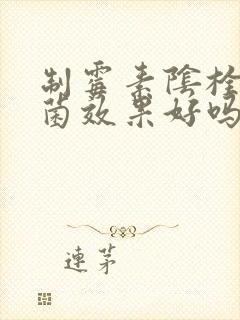 制霉素陰栓
菌效果好吗
連茅